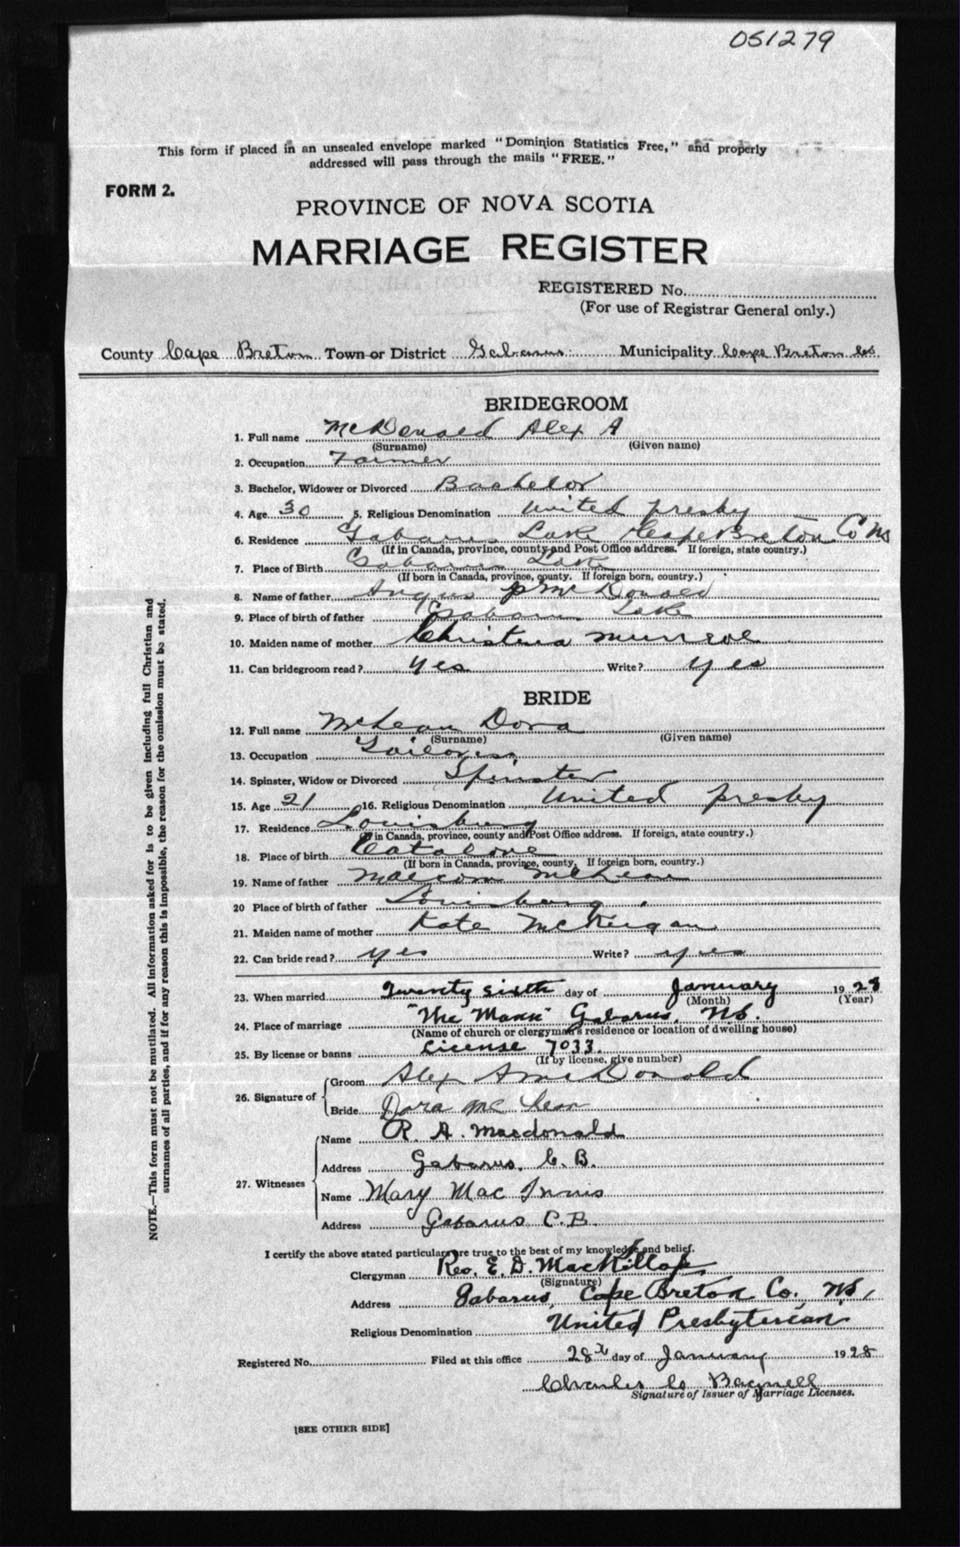 051279
This form if placed in an unsealed envelope marked "Dominion Statistics Free," and properly
addressed will pass through the mails "FREE."
FORM 2.
PROVINCE OF NOVA SCOTIA
MARRIAGE REGISTER
REGISTERED No.
(For use of Registrar General only.)
County Cape Breton Town or District Gabarus Municipality Cape Breton Co.
BRIDEGROOM
1. Full name McDonald Alex A
(Surname) (Given name)
2. Occupation Farmer
3. Bachelor, Widower or Divorced Bachelor
4. Age 30 5. Religious Denomination United presby
6. Residence Gabarus Lake Cape Breton Co NS
(If in Canada, province, county and Post Office address. If foreign, state country.)
7. Place of Birth Gabarus Lake
(If born in Canada, province, county. If foreign born, country.)
8. Name of father Angus McDonald
9. Place of birth of father Gabarus Lake
10. Maiden name of mother Christena Munroe
11. Can bridegroom read? Yes Write? Yes
BRIDE
12. Full name McLean Dora
(Surname) (Given name)
13. Occupation Tailoress
14. Spinster, Widow or Divorced Spinster
15. Age 21 16. Religious Denomination United presby
17. Residence Louisburg
(If in Canada, province, county and Post Office address. If foreign, state country.)
18. Place of birth Catalone
(If born in Canada, province, county. If foreign born, country.)
19. Name of father Malcom McLean
20 Place of birth of father Louisburg
21. Maiden name of mother Kate McKeigan
22. Can bride read? yes Write? yes
23. When married Twenty sixth day of January 1928
(Month) (Year)
24. Place of marriage "The Manse" Gabarus, NS.
(Name of church or clergyman's residence or location of dwelling house)
25. By license or banns License 7033.
(If by license, give number)
26. Signature of
Groom Alex A McDonald
Bride Dora McLean
27. Witnesses
Name R. A. Macdonald
Address Gabarus, C. B.
Name Mary MacInnis
Address Gabarus C. B.
I certify the above stated particulars are true to the best of my knowledge and belief.
Clergyman Rev. E. D. MacKillop
(Signature)
Address Gabarus, Cape Breton Co., NS,
Religious Denomination United Presbyterian
Registered No. Filed at this office 28th day of January 1928
Charles C Bagnell
Signature of Issuer of Marriage Licenses.
[SEE OTHER SIDE]
NOTE.—This form must not be mutilated. All information asked for is to be given including full Christian and
surnames of all parties, and if for any reason this is impossible, the reason for the omission must be stated.